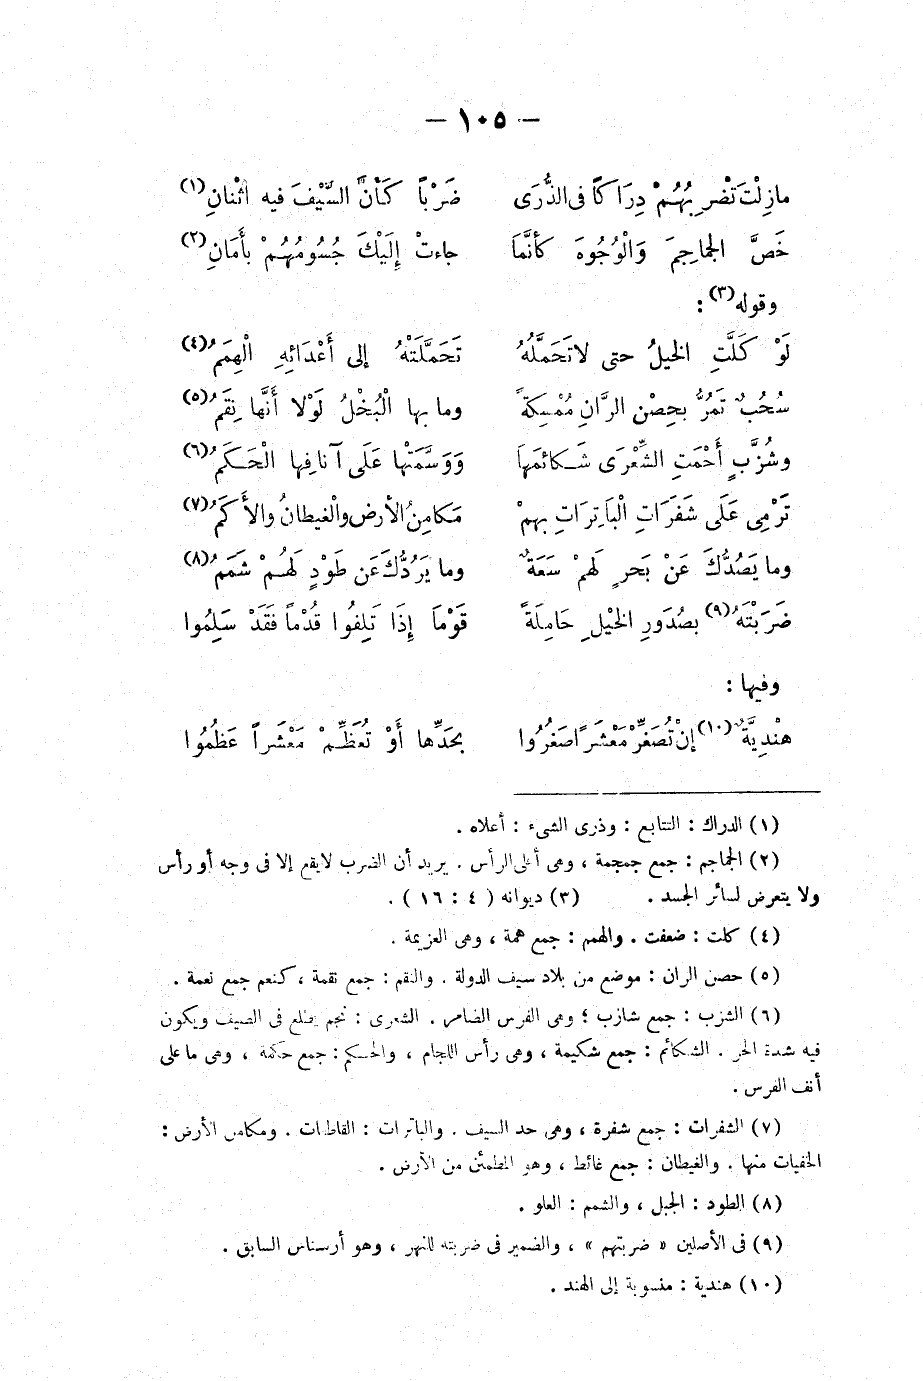 — ١٠٥ —
مازِلْتَ تَضْرِبُهُمْ دِرَاكًا فى الذُّرَى ضَرْبًا كَأَنَّ السَّيْفَ فيه اثْنانِ(١)
خَصَّ الجماجِمَ وَالْوُجُوهَ كأنَّمَا جاءتْ إِلَيْكَ جُسُومُهُمْ بأَمَانِ(٢)
وقوله(٣) :
لَوْ كَلَّتِ الخيلُ حتى لاتَحَمَّلُهُ تَحَمَّلَتْهُ إلى أَعْدَائِهِ الْهِمَمُ(٤)
سُحُبٌ تَمُرُّ بحِصْنِ الرَّانِ مُمْسِكَةً وما بها الْبُخْلُ لَوْلا أَنَّها نِقَمُ(٥)
وشُزَّبٍ أَحْمَتِ الشِّعْرَى شَكائمَهاَ وَوَسَّمَتْها عَلَى آنافِها الْحَكَمُ(٦)
تَرْمِى عَلَى شَفَرَاتِ الْبَاتِرَاتِ بهِمْ مَكامِنُ الأرضِ والْغيطانُ والأَكَمُ(٧)
وما يَصُدُّكَ عَنْ بَحرٍ لَهمْ سَعَةٌ وما يَرُدُّكَ عَن طَوْدٍ لَهُمْ شَمَمُ(٨)
ضَرَبْتَهُ(٩) بصُدُورِ الخيْلِ حَامِلَةً قَوْمًا إِذَا تَلِفُوا قُدْماً فَقَدْ سَلِمُوا
وفيها :
هِنْدِيَّةٌ(١٠) إنْ تُصَغِّرْ مَعْشَرًا صَغَرُوا بحَدِّها أَوْ تُعَظِّمْ مَعْشَراً عَظُمُوا
(١) الدراك : التتابع : وذرى الشىء : أعلاه .
(٢) الجماجم : جمع جمجمة ، وهى أعلى الرأس . يريد أن الضرب لايقع إلا فى وجه أو رأس
ولا يتعرض لسائر الجسد . (٣) ديوانه ( ٤ : ١٦ ) .
(٤) كلت : ضعفت . والهمم : جمع همة ، وهى العزيمة .
(٥) حصن الران : موضع من بلاد سيف الدولة . والنقم : جمع نقمة ، كنعم جمع نعمة .
(٦) الشزب : جمع شازب ؛ وهى الفرس الضامر . الشعرى : نجم يطلع فى الصيف ويكون
فيه شدة الحر . الشكائم : جمع شكيمة ، وهى رأس اللجام ، والحكم : جمع حكمة ، وهى ما على
أنف الفرس .
(٧) الشفرات : جمع شفرة ، وهى حد السيف . والباترات : القاطعات . ومكامن الأرض :
الخفيات منها . والغيطان : جمع غائط ، وهو المطمئن من الأرض .
(٨) الطود : الجبل ، والشمم : العلو .
(٩) فى الأصلين « ضربتهم » ، والضمير فى ضربته للنهر ، وهو أرسناس السابق .
(١٠) هندية : منسوبة إلى الهند .